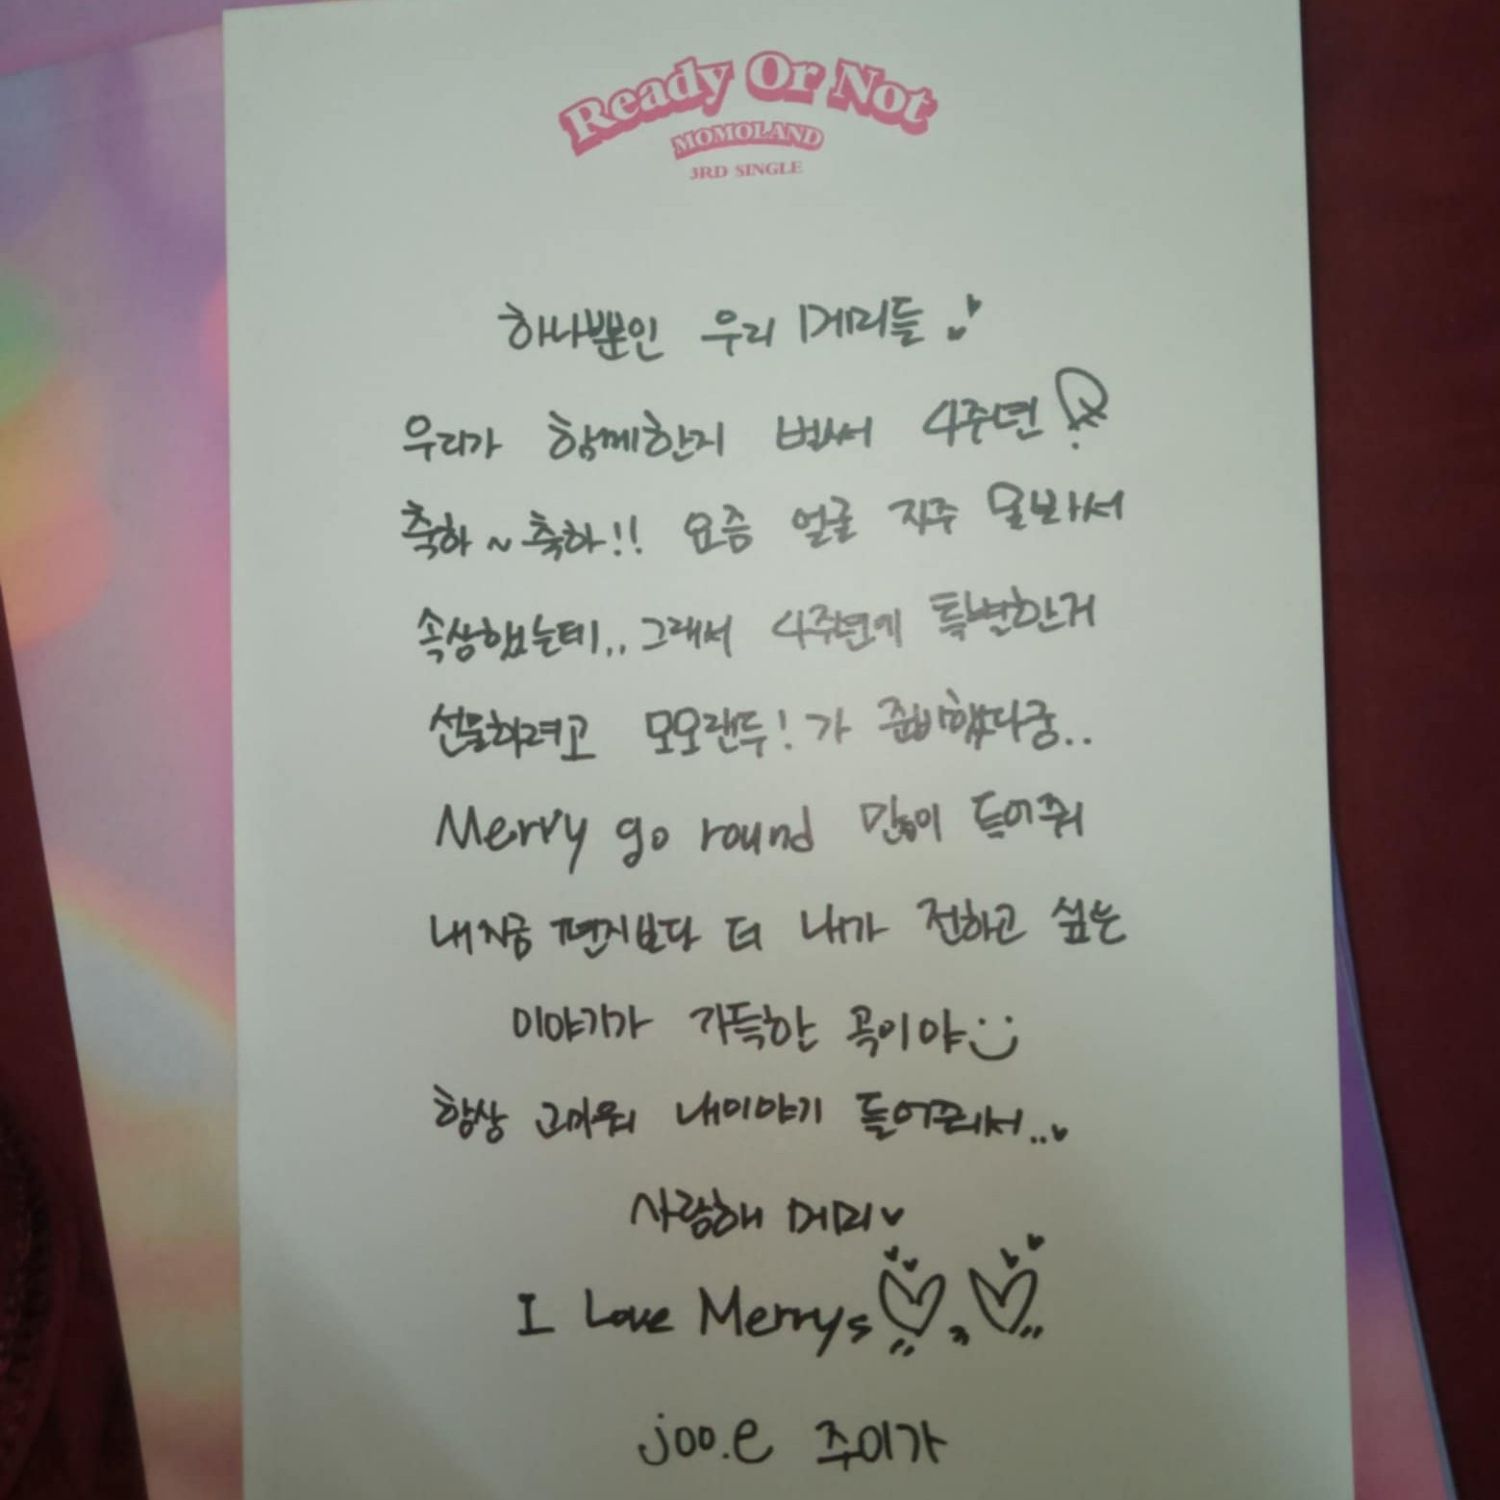 Ready Or Not
MOMOLAND
3RD SINGLE
하나뿐인 우리 메리들
우리가 함께한지 벌써 4주년
축하~축하!! 요즘 얼굴 자주 못봐서
속상했는데.. 그래서 4주년에 특별한거
선물하려고 모모랜두!가 준비했다궁..
Merry go round 많이 들어줘
내지금 편지보다 더 내가 전하고 싶은
이야기가 가득한 곡이야
항상 고마워 내이야기 들어줘서..
사랑해 메리
I Love Merrys
joo.e 주이가